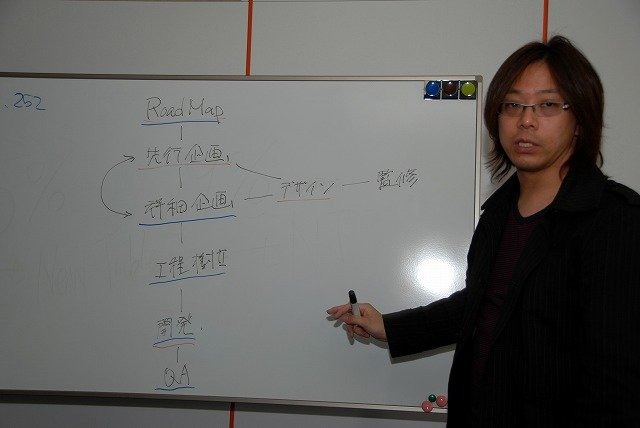 .252
Road Map
先行企画
詳細企画 デザイン 監修
工程樹立
開発.
QA